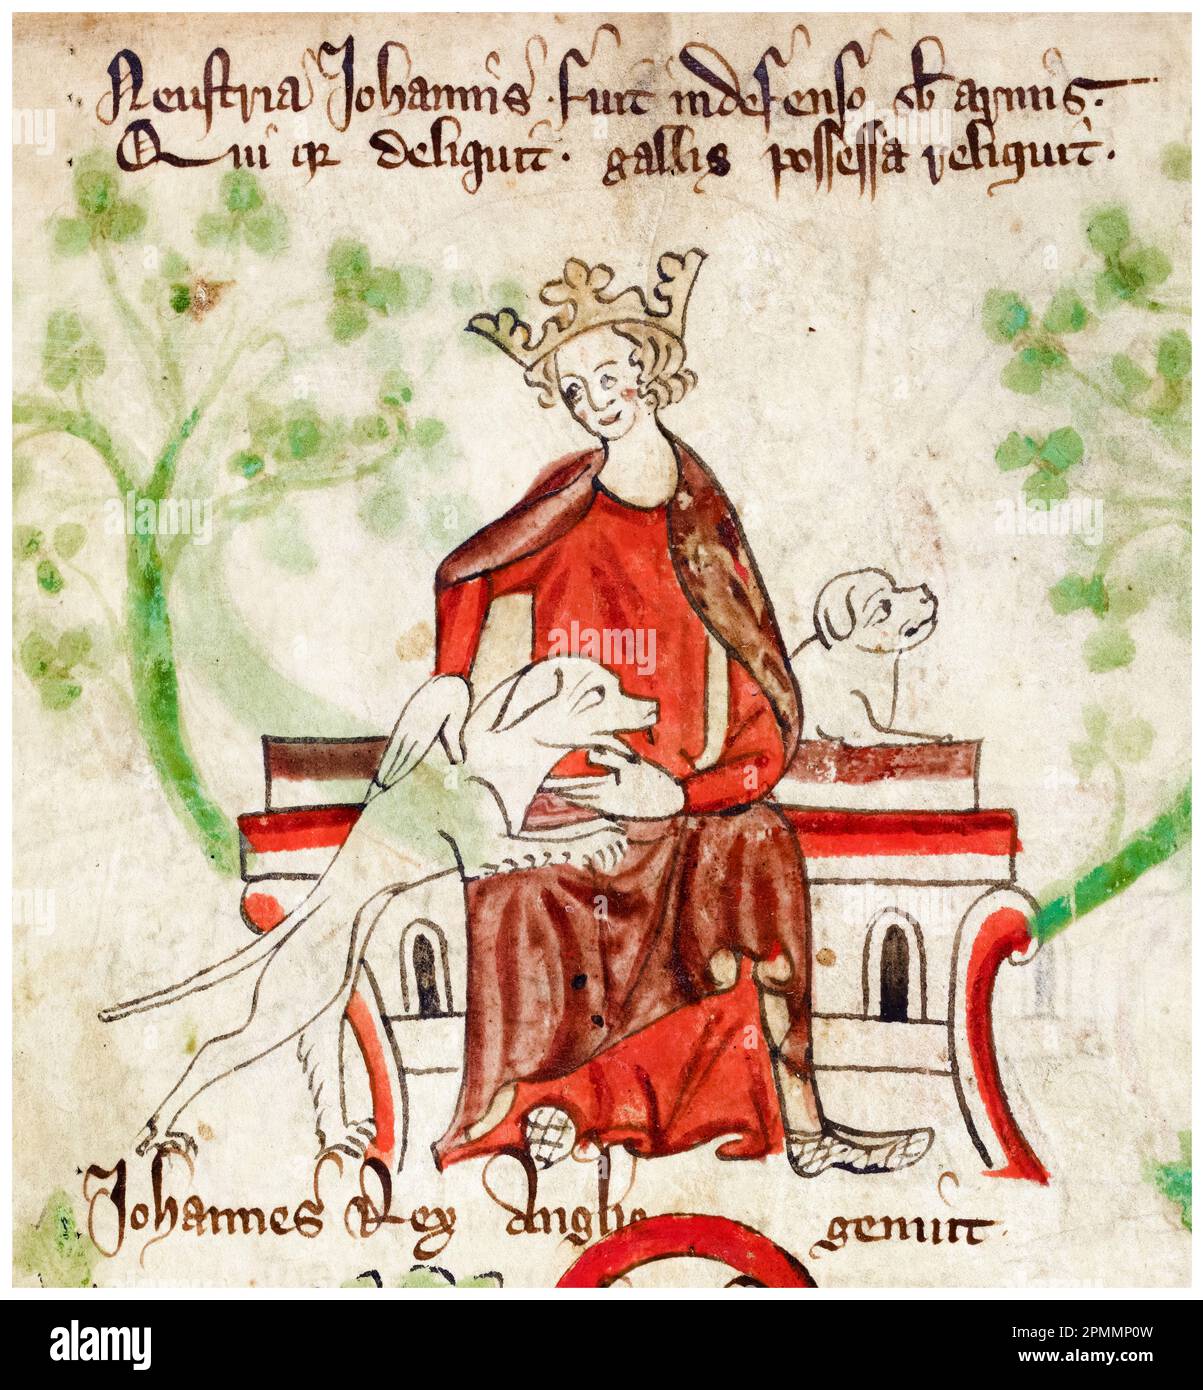 Neustria Johannis fuit indefenso sb armis.
Qui qr deliquit. gallis possessa reliquit.
Johannes Rex Anglie genuit.
alamy
Image ID: 2PMMP0W
www.alamy.com